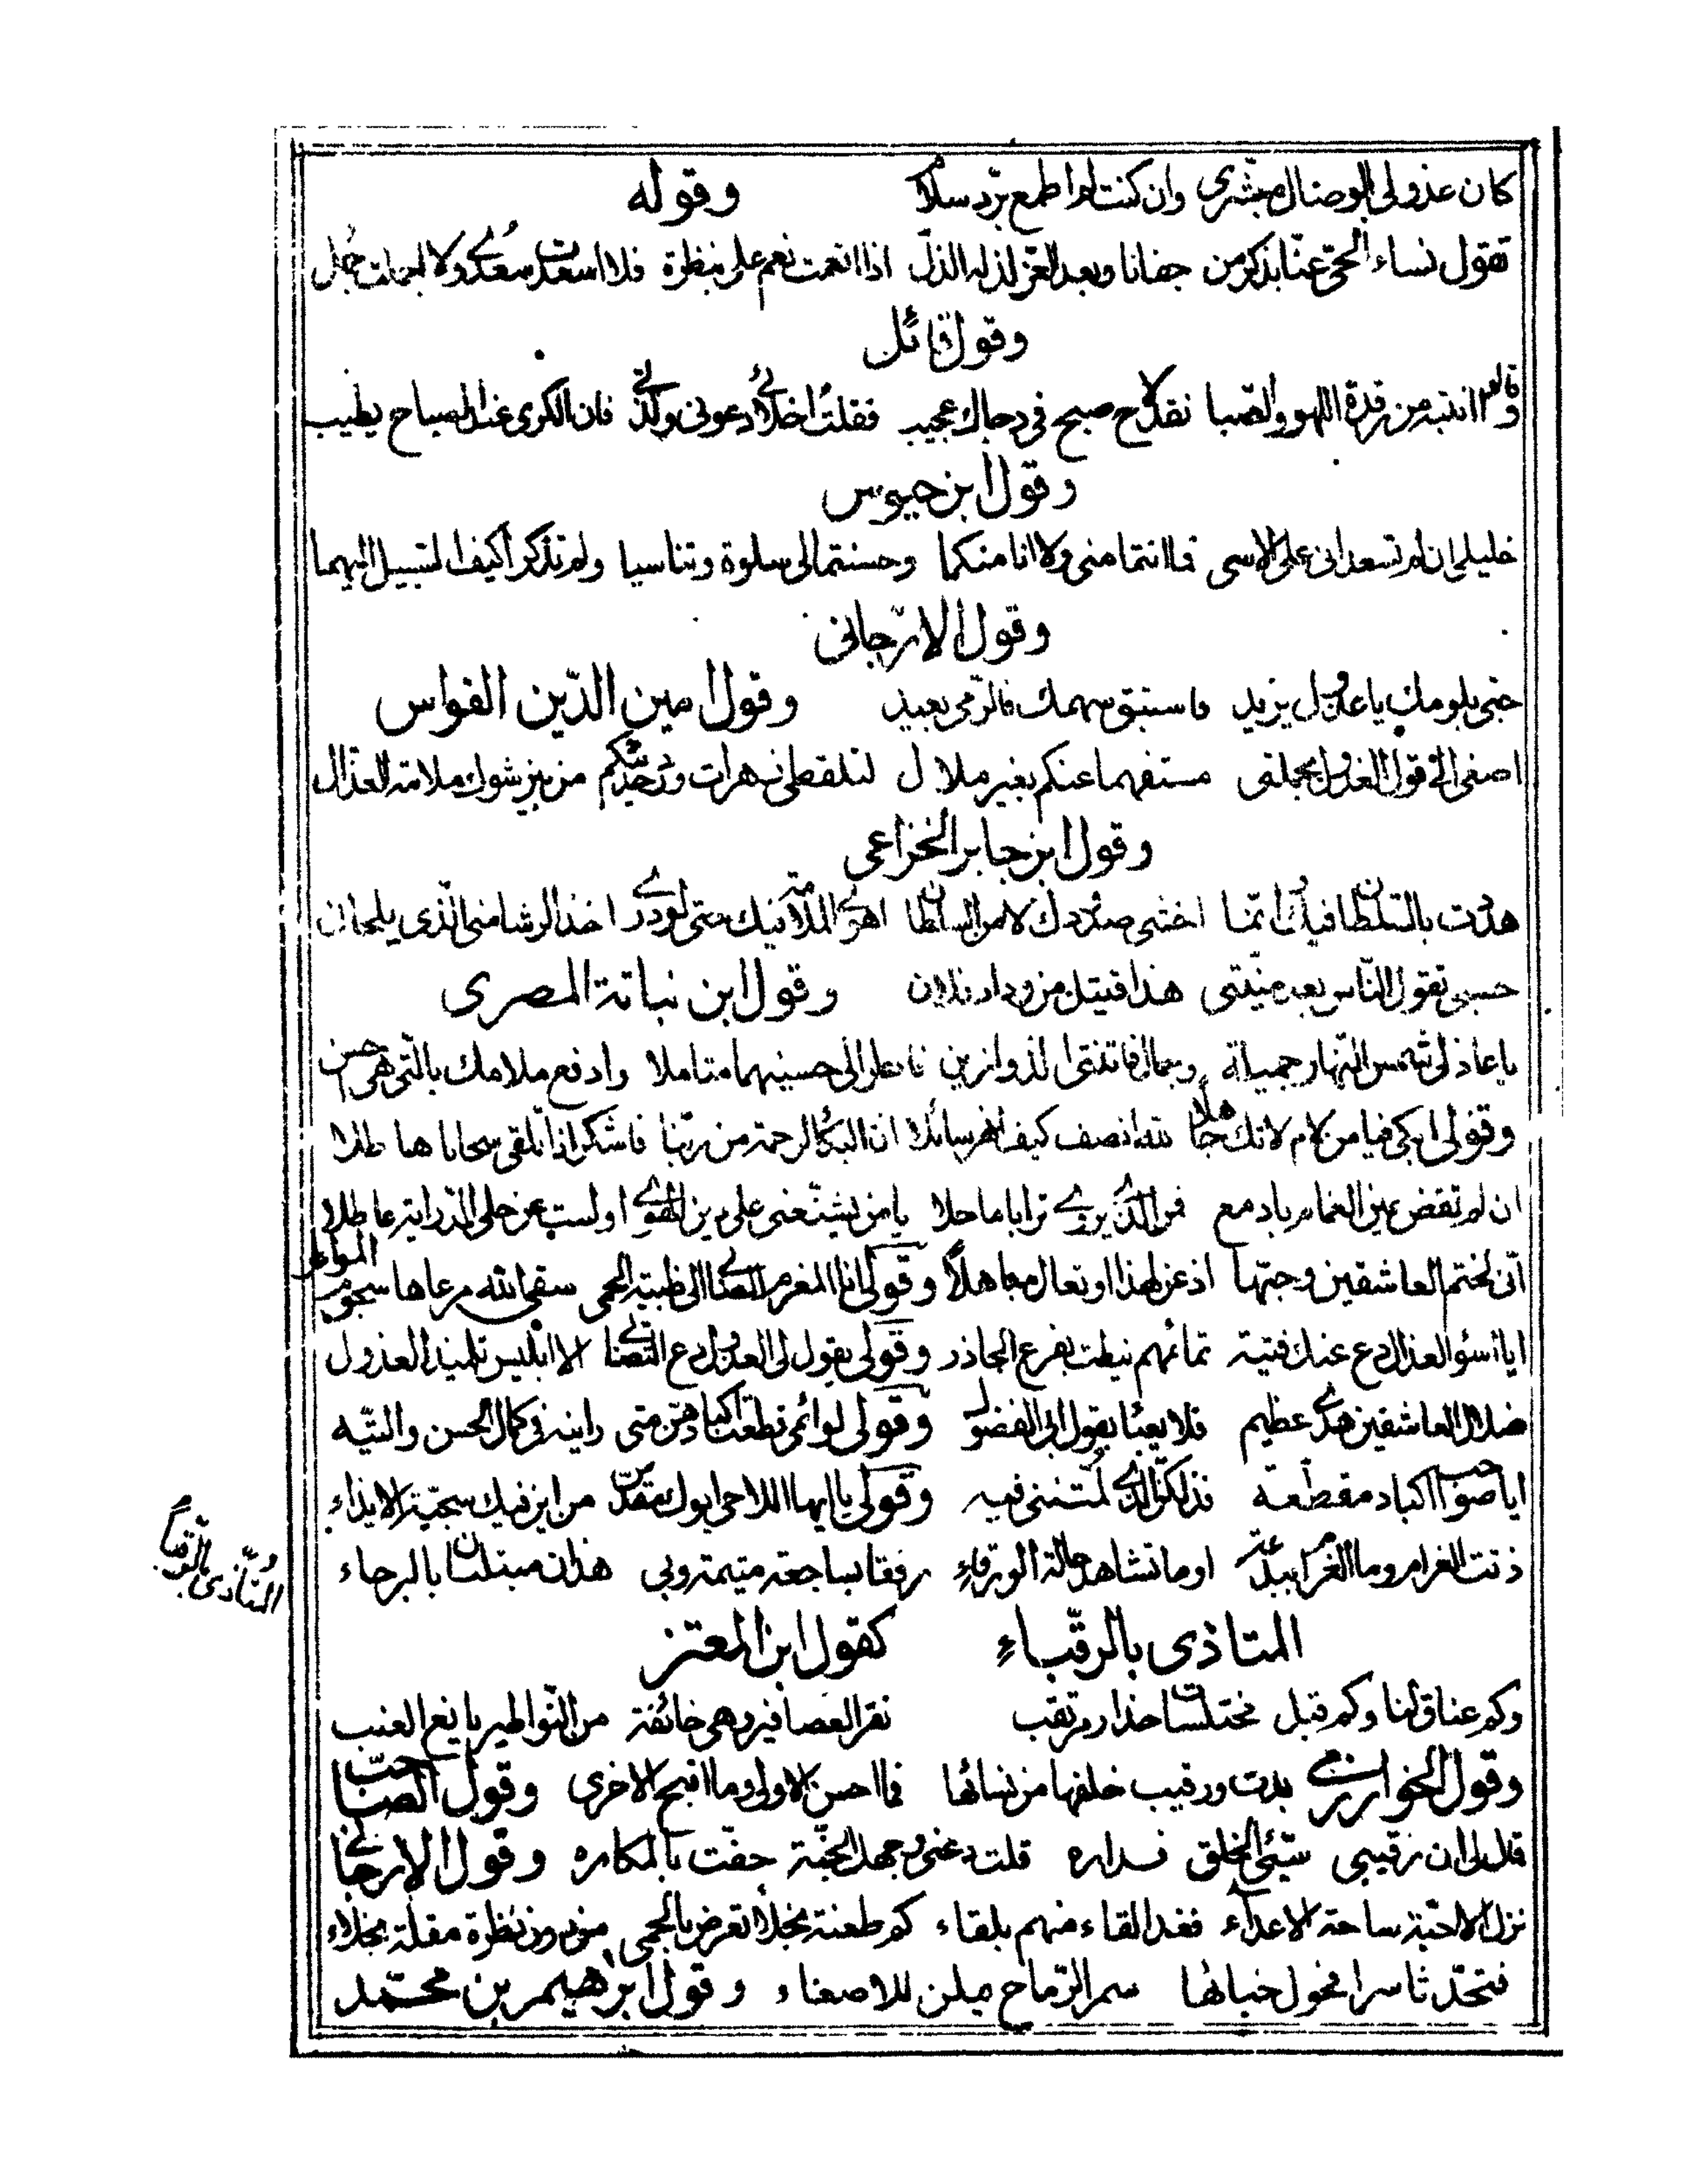 كان عذولى بالوصال مبشرى وان كنت لم اطمع برد سلام وقوله
تقول نساء الحى عنا بذكر من جفانا وبعد العز لذ له الذل اذا انعمت نعم على بنظرة فلا اسعدت سعدى ولا اجملت جمل
وقول قائل
وقالوا انتبه من رقدة اللهو والصبا فقد لاح صبح فى دجاك عجيب فقلت اخلائى دعونى ولذتى فان الكرى عند الصباح يطيب
وقول ابن حيوس
خليلى ان لم تسعدانى على الاسى فما انتما منى ولا انا منكما وحسنتما لى سلوة وتناسيا ولم تذكرا كيف السبيل اليهما
وقول الارّجانى
حبى بلومك يا عذول يزيد فاستبق سهمك فالرمى بعيد وقول امين الدّين القواس
اصغى الى قول العذول بجملتى مستفهما عنكم بغير ملال لتلقطى زهرات ورد حديثكم من بين شوك ملامة العذال
وقول ابن جابر الخزاعى
هددت بالسلطان فيك وانّما اخشى صدودك لا من السلطان اهوى الملامة فيك حتى لو درى اخذ الرشا منى الّذى يلحانى
حسبى تقول النّاس بعد منيّتى هذا قتيل من وداد فلان وقول ابن نباتة المصرى
يا عاذلى شمس النّهار جميلة وجمال فاتنتى الذ وازين فانظر الى حسنيهما متاملا وادفع ملامك بالّتى هى احسن
وقولى ابكى فيا من لام لا تك جاهلا تالله انصف كيف انهر سائلا ان البكا لرحمة من ربنا فاشكر اذا تلقى سحابا هاطلا
ان لم تفض عين الغمام بادمع فمن الذى يروى ترابا ماحلا يا من يشنّعنى على دين الهوى اولست عن حلى الدراية عاطلا
انى لختم العاشقين وحبّها اذعن لهذا او تعال مجاهلاً وقولى انا المغرم الصنانى الى ظبية الحمى سقى الله مرعاها سجوم المواطر
ايا اسؤ العذال دع عنك فتية تمائمهم نيطت بفرع الجاذر وقولى يقول لى العذول دع التصنابى الا ابليس تلميذ العذول
ضلال العاشقين هدى عظيم فلا يعبأ بقول ابى الفضول وقولى لوائمى قطعت اكبادهنّ متى راينه فى كمال الحسن والتّيه
ايا صواحب اكباد مقطّعة فذلكنّ الذى لمتننى فيه وقولى يا ايها اللاحى ابوك مقدّس من اين فيك سجيّة الايذاء
ذقت الغرام وما الغرام ببدعة اوما تشاهد حالة الورقاء رفقا بساجعة متيمة وبى هذان مبتلان بالبرحاء
المتاذى بالرقّباء كقول ابن المعتز
المتاذى بالرّقباء
وكم عناق لنا وكم قبل مختلسات حذار مرتقب نقر العصافير وهى خائفة من النّواطير يانع العنب
وقول الخوارزمى بدت ورقيب خلفها من نسائها فما احسن الاولى وما اقبح الاخرى وقول الصاحب
قال لى ان رقيبى سيّئ الخلق فداره قلت دعنى وجهك الجنّة حفّت بالمكاره وقول الارجانى
نزل الاحبّة ساحة الاعداء فغدا لقاء منهم بلقاء كم طعنة نجلاء تعرض بالحمى من دون نظرة مقلة نجلاء
فتحدّثا سرا فحول خبائها سمر الرّماح يملن للاصغاء وقول ابرهيم بن محمّد